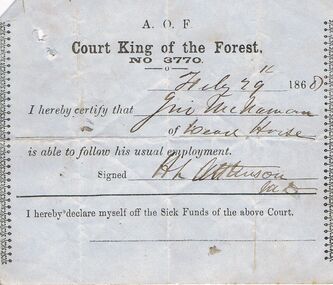 A. O. F.
Court King of the Forest.
NO 3770.
Feby 29th 1868
I hereby certify that Jno McNamara
of House
is able to follow his usual employment.
Signed H L Atkinson
I hereby declare myself off the Sick Funds of the above Court.